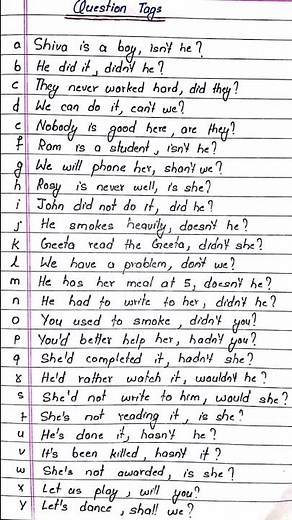 Question Tags
a Shiva is a boy, isn't he?
b He did it, didn't he?
c They never worked hard, did they?
d We can do it, can't we?
e Nobody is good here, are they?
f Ram is a student, isn't he?
g We will phone her, shan't we?
h Rosy is never well, is she?
i John did not do it, did he?
j He smokes heavily, doesn't he?
k Geeta read the Geeta, didn't she?
l We have a problem, don't we?
m He has her meal at 5, doesn't he?
n He had to write to her, didn't he?
o You used to smoke, didn't you?
p You'd better help her, hadn't you?
q She'd completed it, hadn't she?
r He'd rather watch it, wouldn't he?
s She'd not write to him, would she?
t She's not reading it, is she?
u He's done it, hasn't he?
v It's been killed, hasn't it?
w She's not awarded, is she?
x Let us play, will you?
y Let's dance, shall we?